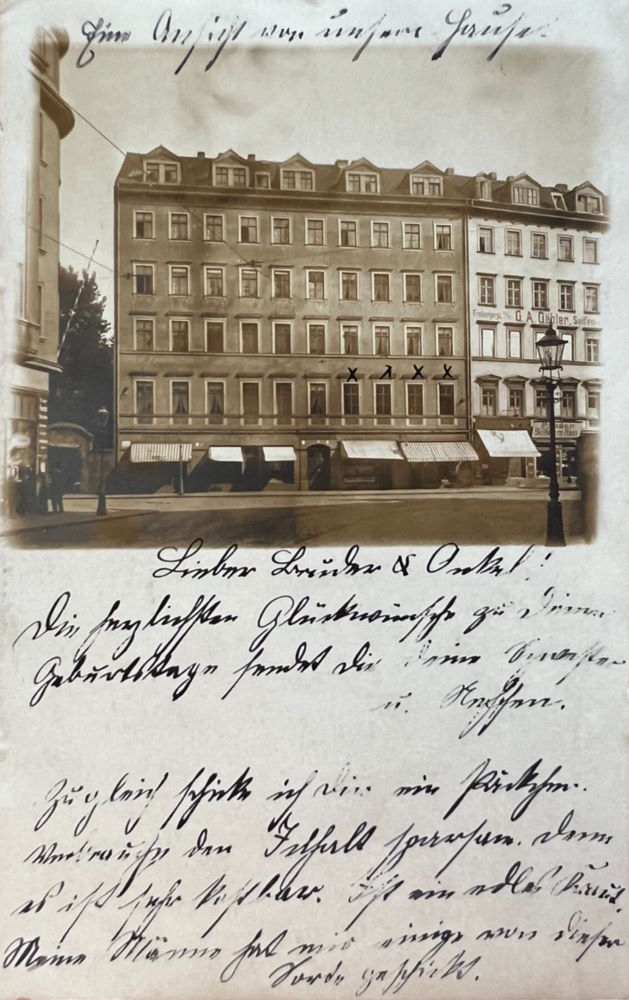 Eine Ansicht von unsern Hause.
G.A. Gäbler, Seifen
x x x x
Lieber Bruder & Onkel!
Die herzlichsten Glückwünsche zu Deinem
Geburtstage sendet Dir Deine Schwester
u. Neffchen.
Zugleich schicke ich Dir ein Päckchen.
Verbrauche den Inhalt sparsam. Denn
es ist sehr kostbar. Ist ein edles Kraut.
Meine Männe hat mir einige von dieser
Sorte geschickt.